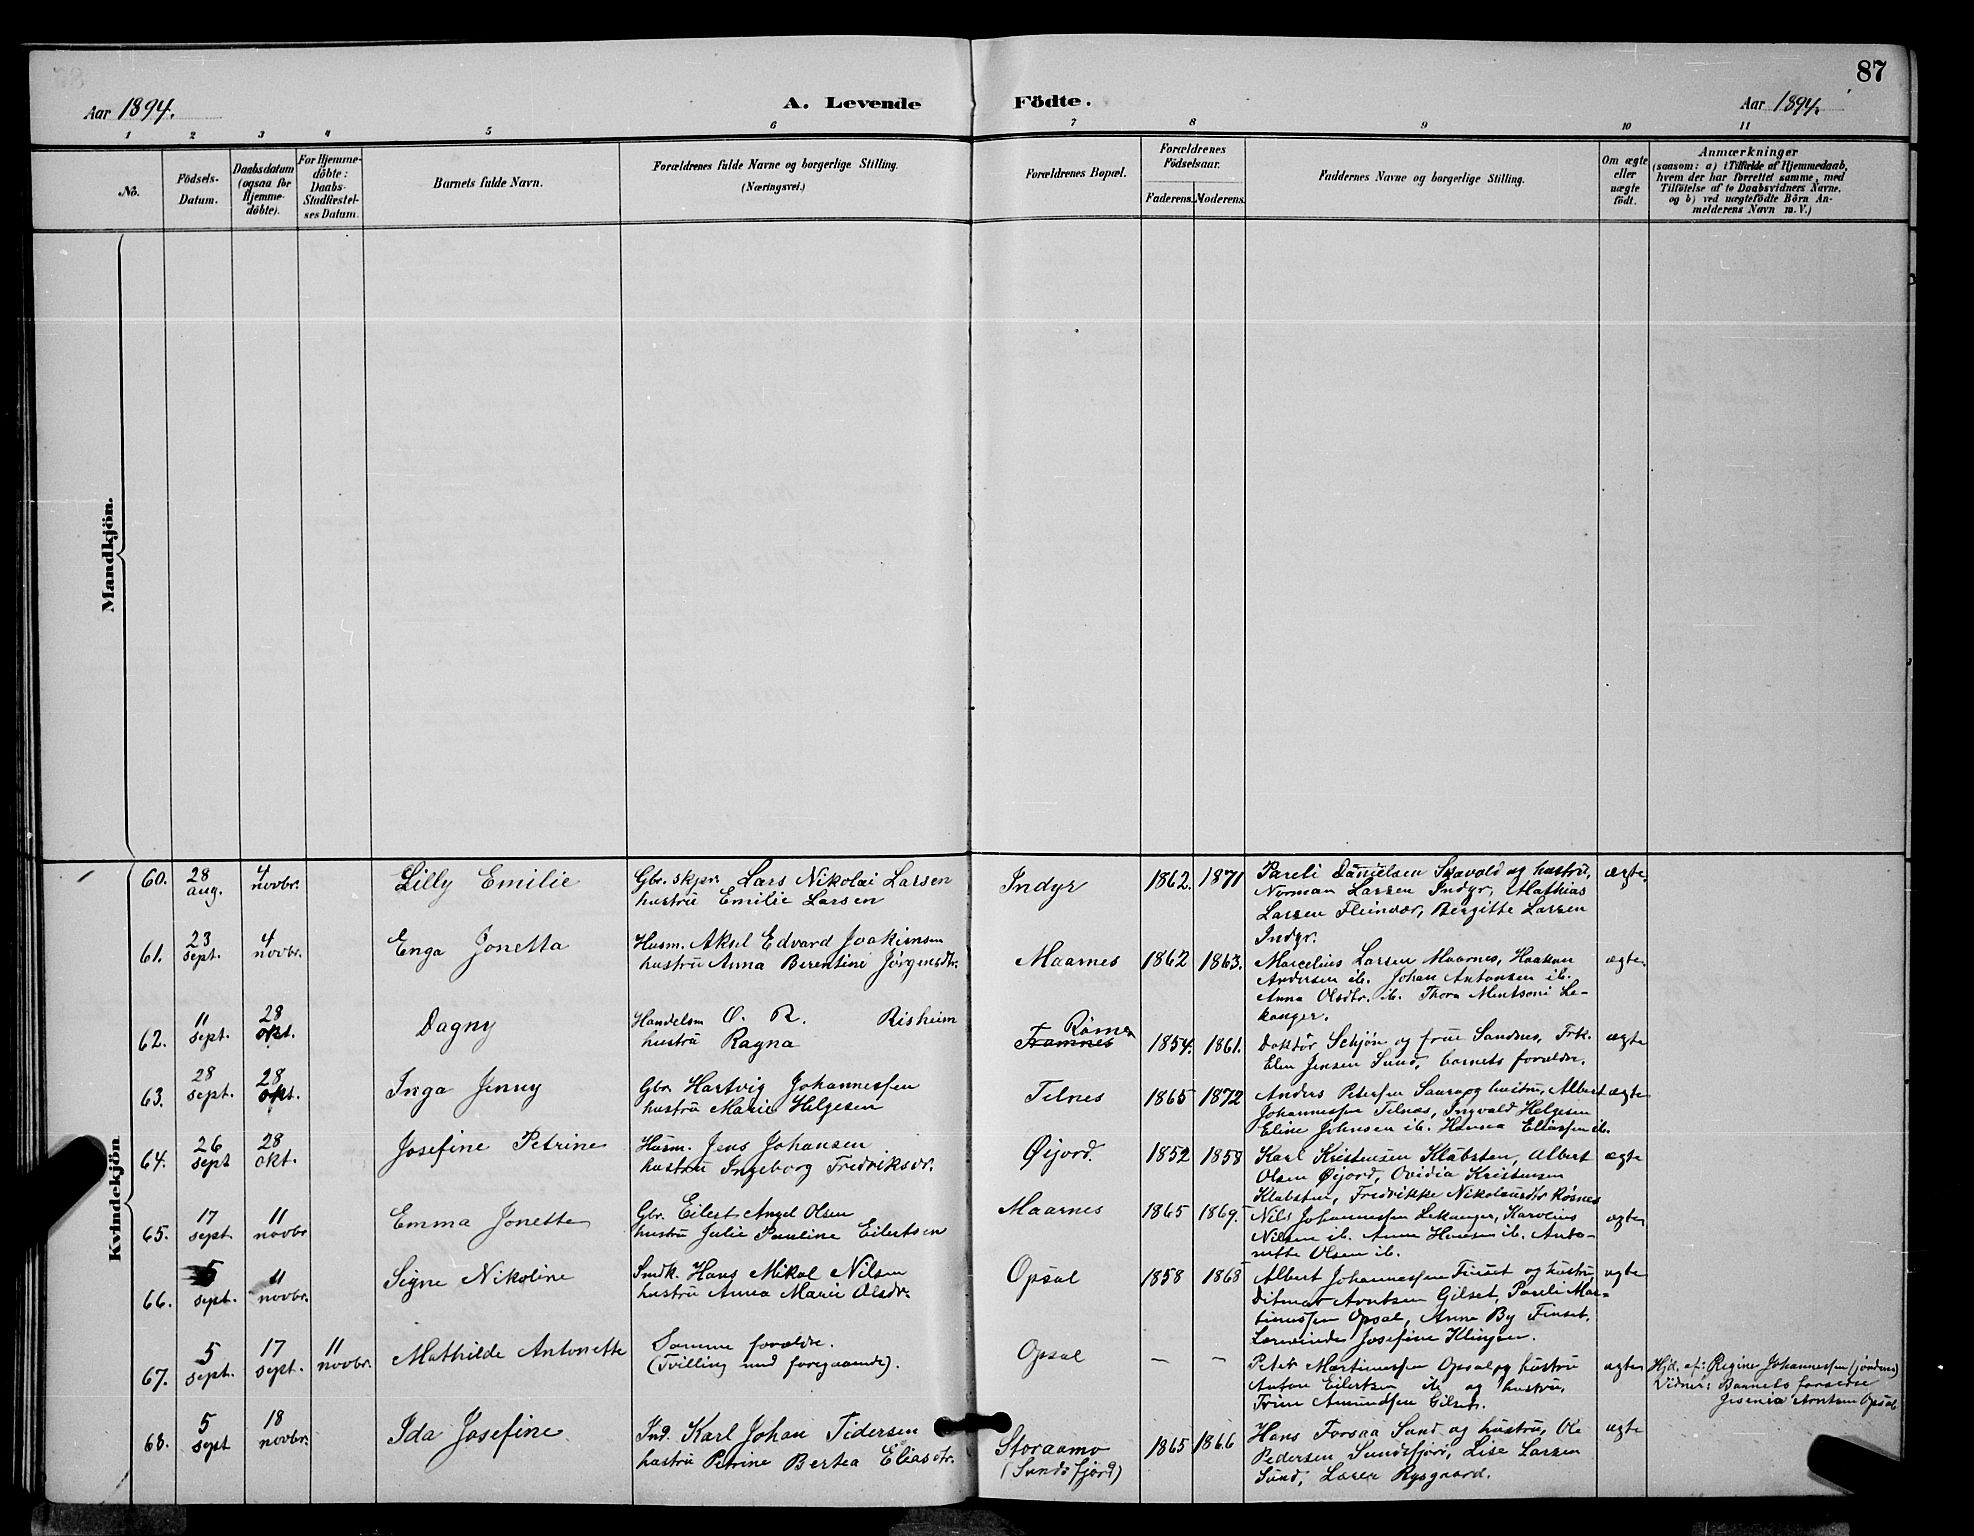 87
Aar 1894.
A. Levende Födte.
Aar 1894.
1 2 3 4 5 6 7 8 9 10 11
No.
Födsels-Datum.
Daabsdatum (ogsaa for Hjemme-döbte).
For Hjemme-döbte: Daabs-Stadfæstel-ses Datum.
Barnets fulde Navn.
Forældrenes fulde Navne og borgerlige Stilling.
(Næringsvei.)
Forældrenes Bopæl.
Forældrenes Födselsaar.
Faderens. Moderens.
Faddernes Navne og borgerlige Stilling.
Om ægte eller uægte födt.
Anmærkninger
(saasom: a) i Tilfælde af Hjemmedaab,
hvem der har forrettet samme, med
Tilföielse af to Daabsvidners Navne.
og b) ved uægtefödte Börn An-
melderens Navn m. V.)
Mandkjön.
Kvindekjön
60. 28 aug. 4 novbr. Lilly Emilie
Gbr. skpr. Lars Nikolai Larsen
hustru Emilie Larsen
Indyr 1862. 1871
Pareli Danielsen Skavold og hustru,
Norman Larsen Indyr, Mathias
Larsen Fleindær, Bergitte Larsen
Indyr.
ægte.
61. 23 sept. 4 novbr. Enga Jonetta
Husm. Aksel Edvard Joakimsen
hustru Anna Berentine Jørgensdtr.
Maarnes 1862 1863.
Marcelius Larsen Maarnes, Haakon
Andersen ib. Johan Antonsen ib.
Anna Olsdtr. ib. Thora Mentsoni Le-
kanger.
ægte
62. 11 sept. 28 okt. Dagny
Handelsm O. R. Risheim
hustru Ragna
Framnes 1854. 1861.
Doktor Schjøn og frue Sandnes, Frk.
Elen Jensen Sund, barnets forældre.
ægte
63. 28 sept. 28 okt. Inga Jenny
Gbr Hartvig Johannessen
hustru Marie Helgesen
Telnes 1865 1872
Anders Petersen Saura og hustru, Albert
Johannessen Telnes, Ingvald Helgesen
Eline Johnsen ib. Hanna Eliassen ib.
ægte
64. 26 sept 28 okt. Josefine Petrine
Husm. Jens Johansen
hustru Ingeborg Fredriksdr.
Øijord. 1852 1858
Karl Kristensen Klabsten, Albert
Olsen Øijord, Ovidia Kristensen
Klabsten, Fredrikke Nikolausdtr Røsnes
ægte
65. 17 sept 11 novbr Emma Jonette
Gbr. Eilert Angel Olsen
hustru Julie Pauline Eilertsen
Maarnes 1865 1869.
Nils Johannessen Lekanger, Karolius
Nilsen ib. Anne Hansen ib. Anto-
nette Olsen ib.
ægte
66. 5 sept. 11 novbr. Signe Nikoline
Smdk. Hans Mikal Nilsen
hustru Anna Marie Olsdr.
Opsal 1858 1868
Albert Johannessen Finset og hustru
Ditmar Arntsen Gilset, Pareli Mar-
tinussen Opsal, Anne By Finset,
Lærerinde Josefine Klingen.
ægte
67. 5 sept. 17 sept. 11 novbr. Mathilde Antonette
Samme forældre.
(Tvilling med foregaaende).
Opsal – –
Peter Martinussen Opsal og hustru
Anton Eilertsen ib og hustru,
Trine Amundsen Gilset.
ægte
Hjd. af: Regine Johannessen (jordmo)
Vidner: Barnets forældre
Jesenia Arntsen Opsal
68. 5 sept 18 novbr. Ida Josefine
Ind. Karl Johan Tidersen
hustru Petrine Bertea Eliasdtr.
Storaamo
(Sundsfjord)
1865 1866
Hans Forsaa Sund og hustru, Ole
Pedersen Sundsfjord, Lise Larsen
Sund, Lærer Rysgaard.
ægte